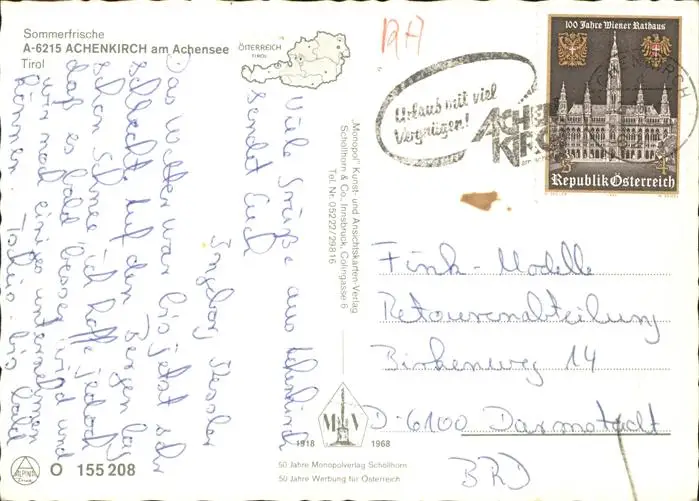 Sommerfrische
A-6215 ACHENKIRCH am Achensee
Tirol
ÖSTERREICH
TIROL
Viele Grüße aus Achenkirch
sendet Euch
Ingeborg
Das Wetter war bis jetzt sehr
schlecht. Auf den Bergen lag
schon Schnee. ich hoffe jedoch
daß es bald besser wird und
wir noch einiges unternehmen
können.
bis bald
"Monopol" Kunst- und Ansichtskarten-Verlag
Schöllhorn & Co., Innsbruck, Colingasse 6
Tel. Nr. 05222/29816
Urlaub mit viel
Vergnügen!
ACHEN
KIRCH
100 Jahre Wiener Rathaus
S 4
Republik Österreich
Fink-Modelle
Retourenabteilung
Birkenweg 14
D-6100 Darmstadt
BRD
M V
1918 1968
50 Jahre Monopolverlag Schöllhorn
50 Jahre Werbung für Österreich
ALPINA
O 155 208